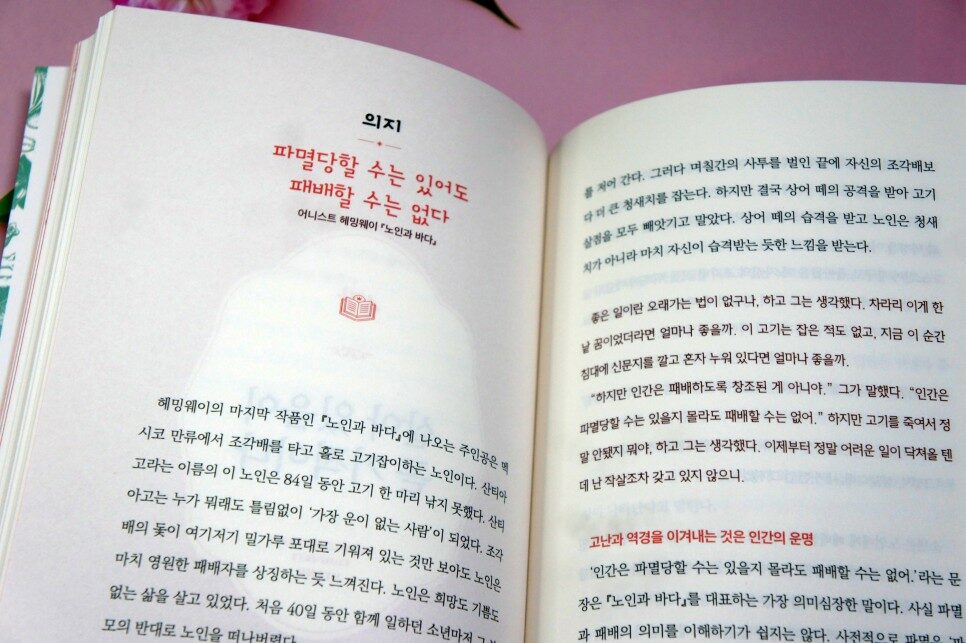 의지
파멸당할 수는 있어도
패배할 수는 없다
어니스트 헤밍웨이 『노인과 바다』
헤밍웨이의 마지막 작품인 『노인과 바다』에 나오는 주인공은 멕
시코 만류에서 조각배를 타고 홀로 고기잡이하는 노인이다. 산티아
고라는 이름의 이 노인은 84일 동안 고기 한 마리 낚지 못했다. 산티
아고는 누가 뭐래도 틀림없이 ‘가장 운이 없는 사람’이 되었다. 조각
배의 돛이 여기저기 밀가루 포대로 기워져 있는 것만 보아도 노인은
마치 영원한 패배자를 상징하는 듯 느껴진다. 노인은 희망도 기쁨도
없는 삶을 살고 있었다. 처음 40일 동안 함께 일하던 소년마저 그
모의 반대로 노인을 떠나버렸다
자신의 조각배보
를 저어 간다. 그러다 며칠간의 사투를 벌인 끝에
다 더 큰 청새치를 잡는다. 하지만 결국 상어 떼의 공격을 받아 고기
살점을 모두 빼앗기고 말았다. 상어 떼의 습격을 받고 노인은 청새
치가 아니라 마치 자신이 습격받는 듯한 느낌을 받는다.
좋은 일이란 오래가는 법이 없구나, 하고 그는 생각했다. 차라리 이게 한
낱 꿈이었더라면 얼마나 좋을까. 이 고기는 잡은 적도 없고, 지금 이 순간
침대에 신문지를 깔고 혼자 누워 있다면 얼마나 좋을까.
“하지만 인간은 패배하도록 창조된 게 아니야.” 그가 말했다. “인간은
파멸당할 수는 있을지 몰라도 패배할 수는 없어.” 하지만 고기를 죽여서 정
말 안됐지 뭐야, 하고 그는 생각했다. 이제부터 정말 어려운 일이 닥쳐올 텐
데 난 작살조차 갖고 있지 않으니.
고난과 역경을 이겨내는 것은 인간의 운명
‘인간은 파멸당할 수는 있을지 몰라도 패배할 수는 없어.’라는 문
장은 『노인과 바다』를 대표하는 가장 의미심장한 말이다. 사실 파멸
과 패배의 의미를 이해하기가 쉽지는 않다. 사전적으로 파멸은